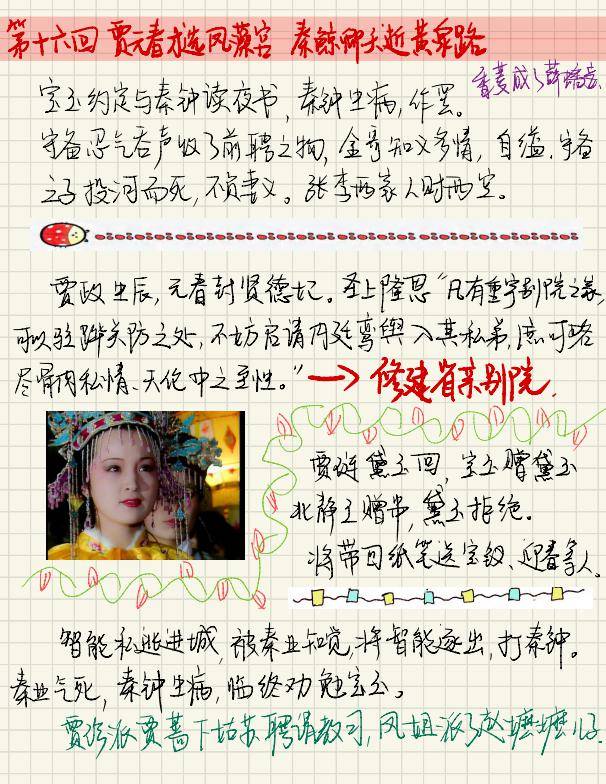 第十六回 贾元春才选凤藻宫 秦鲸卿夭逝黄泉路
香菱成了薛蟠妾.
宝玉约定与秦钟读夜书，秦钟生病，作罢。
守备忍气吞声收了前聘之物，金哥知义多情，自缢.守备
之子投河而死，不负妻义。张李两家人财两空。
贾政生辰，元春封贤德妃。圣上隆恩“凡有重宇别院之家，
可以驻跸关防之处，不妨启请内廷鸾舆入其私第，庶可略
尽骨肉私情、天伦中之至性。”→修建省亲别院.
贾琏黛玉回，宝玉赠黛玉
北静王赠串，黛玉拒绝。
将带回纸笔送宝钗、迎春等人.
智能私逃进城，被秦业知觉，将智能逐出，打秦钟。
秦业气死，秦钟生病，临终劝勉宝玉。
贾珍派贾蔷下姑苏聘请教习，凤姐派了赵嬷嬷儿子.